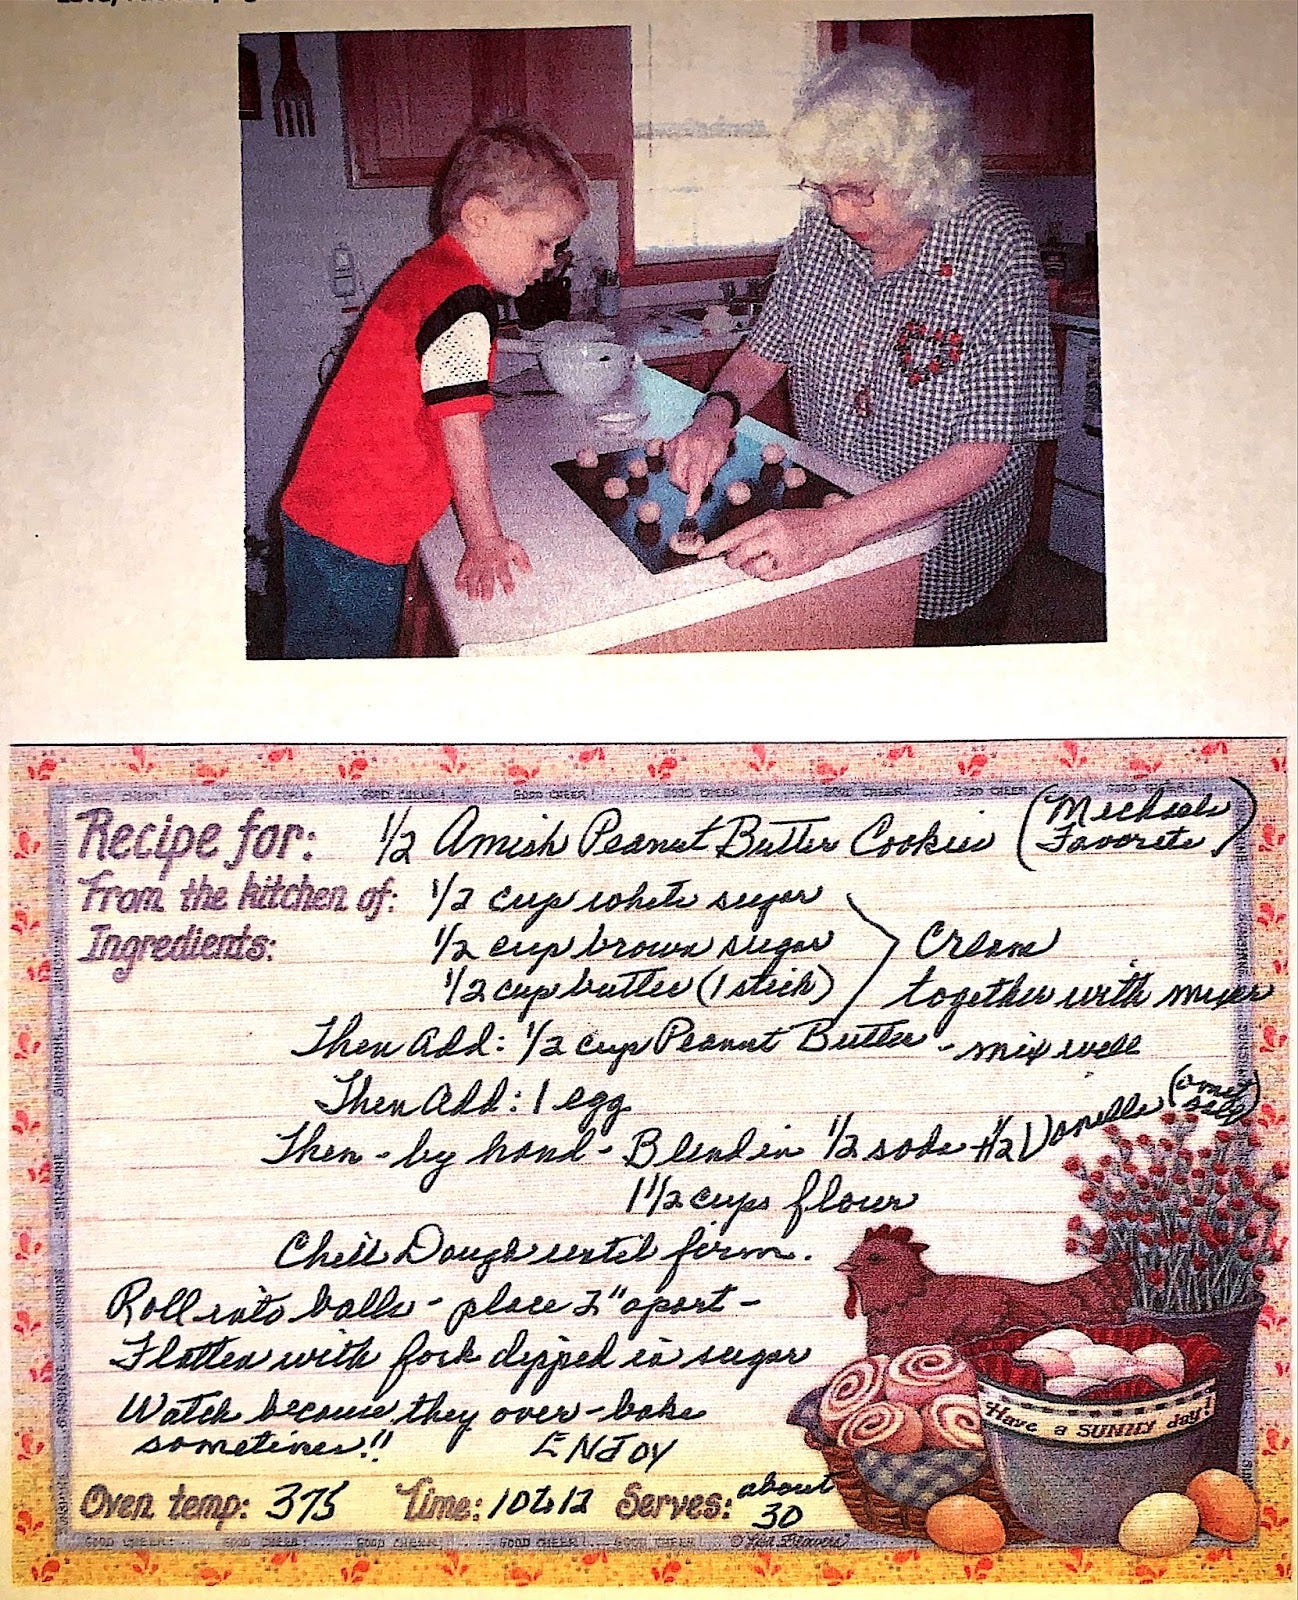 Recipe for: 1/2 Amish Peanut Butter Cookies (Michaels Favorite)
From the kitchen of: 1/2 cup white sugar
Ingredients: 1/2 cup brown sugar Cream
1/2 cup butter (1 stick) together with mixer
Then Add: 1/2 cup Peanut Butter - mix well
Then Add: 1 egg
Then - by hand - Blend in 1/2 soda + 1/2 Vanilla
1 1/2 cups flour
Chill Dough until firm.
Roll into balls - place 2" apart -
Flatten with fork dipped in sugar
Watch because they over-bake
sometimes!! ENJOY
Have a SUNNY day!
Oven temp: 375 Time: 10 to 12 Serves: about 30
GOOD CHEER! GOOD CHEER! GOOD CHEER! GOOD CHEER!